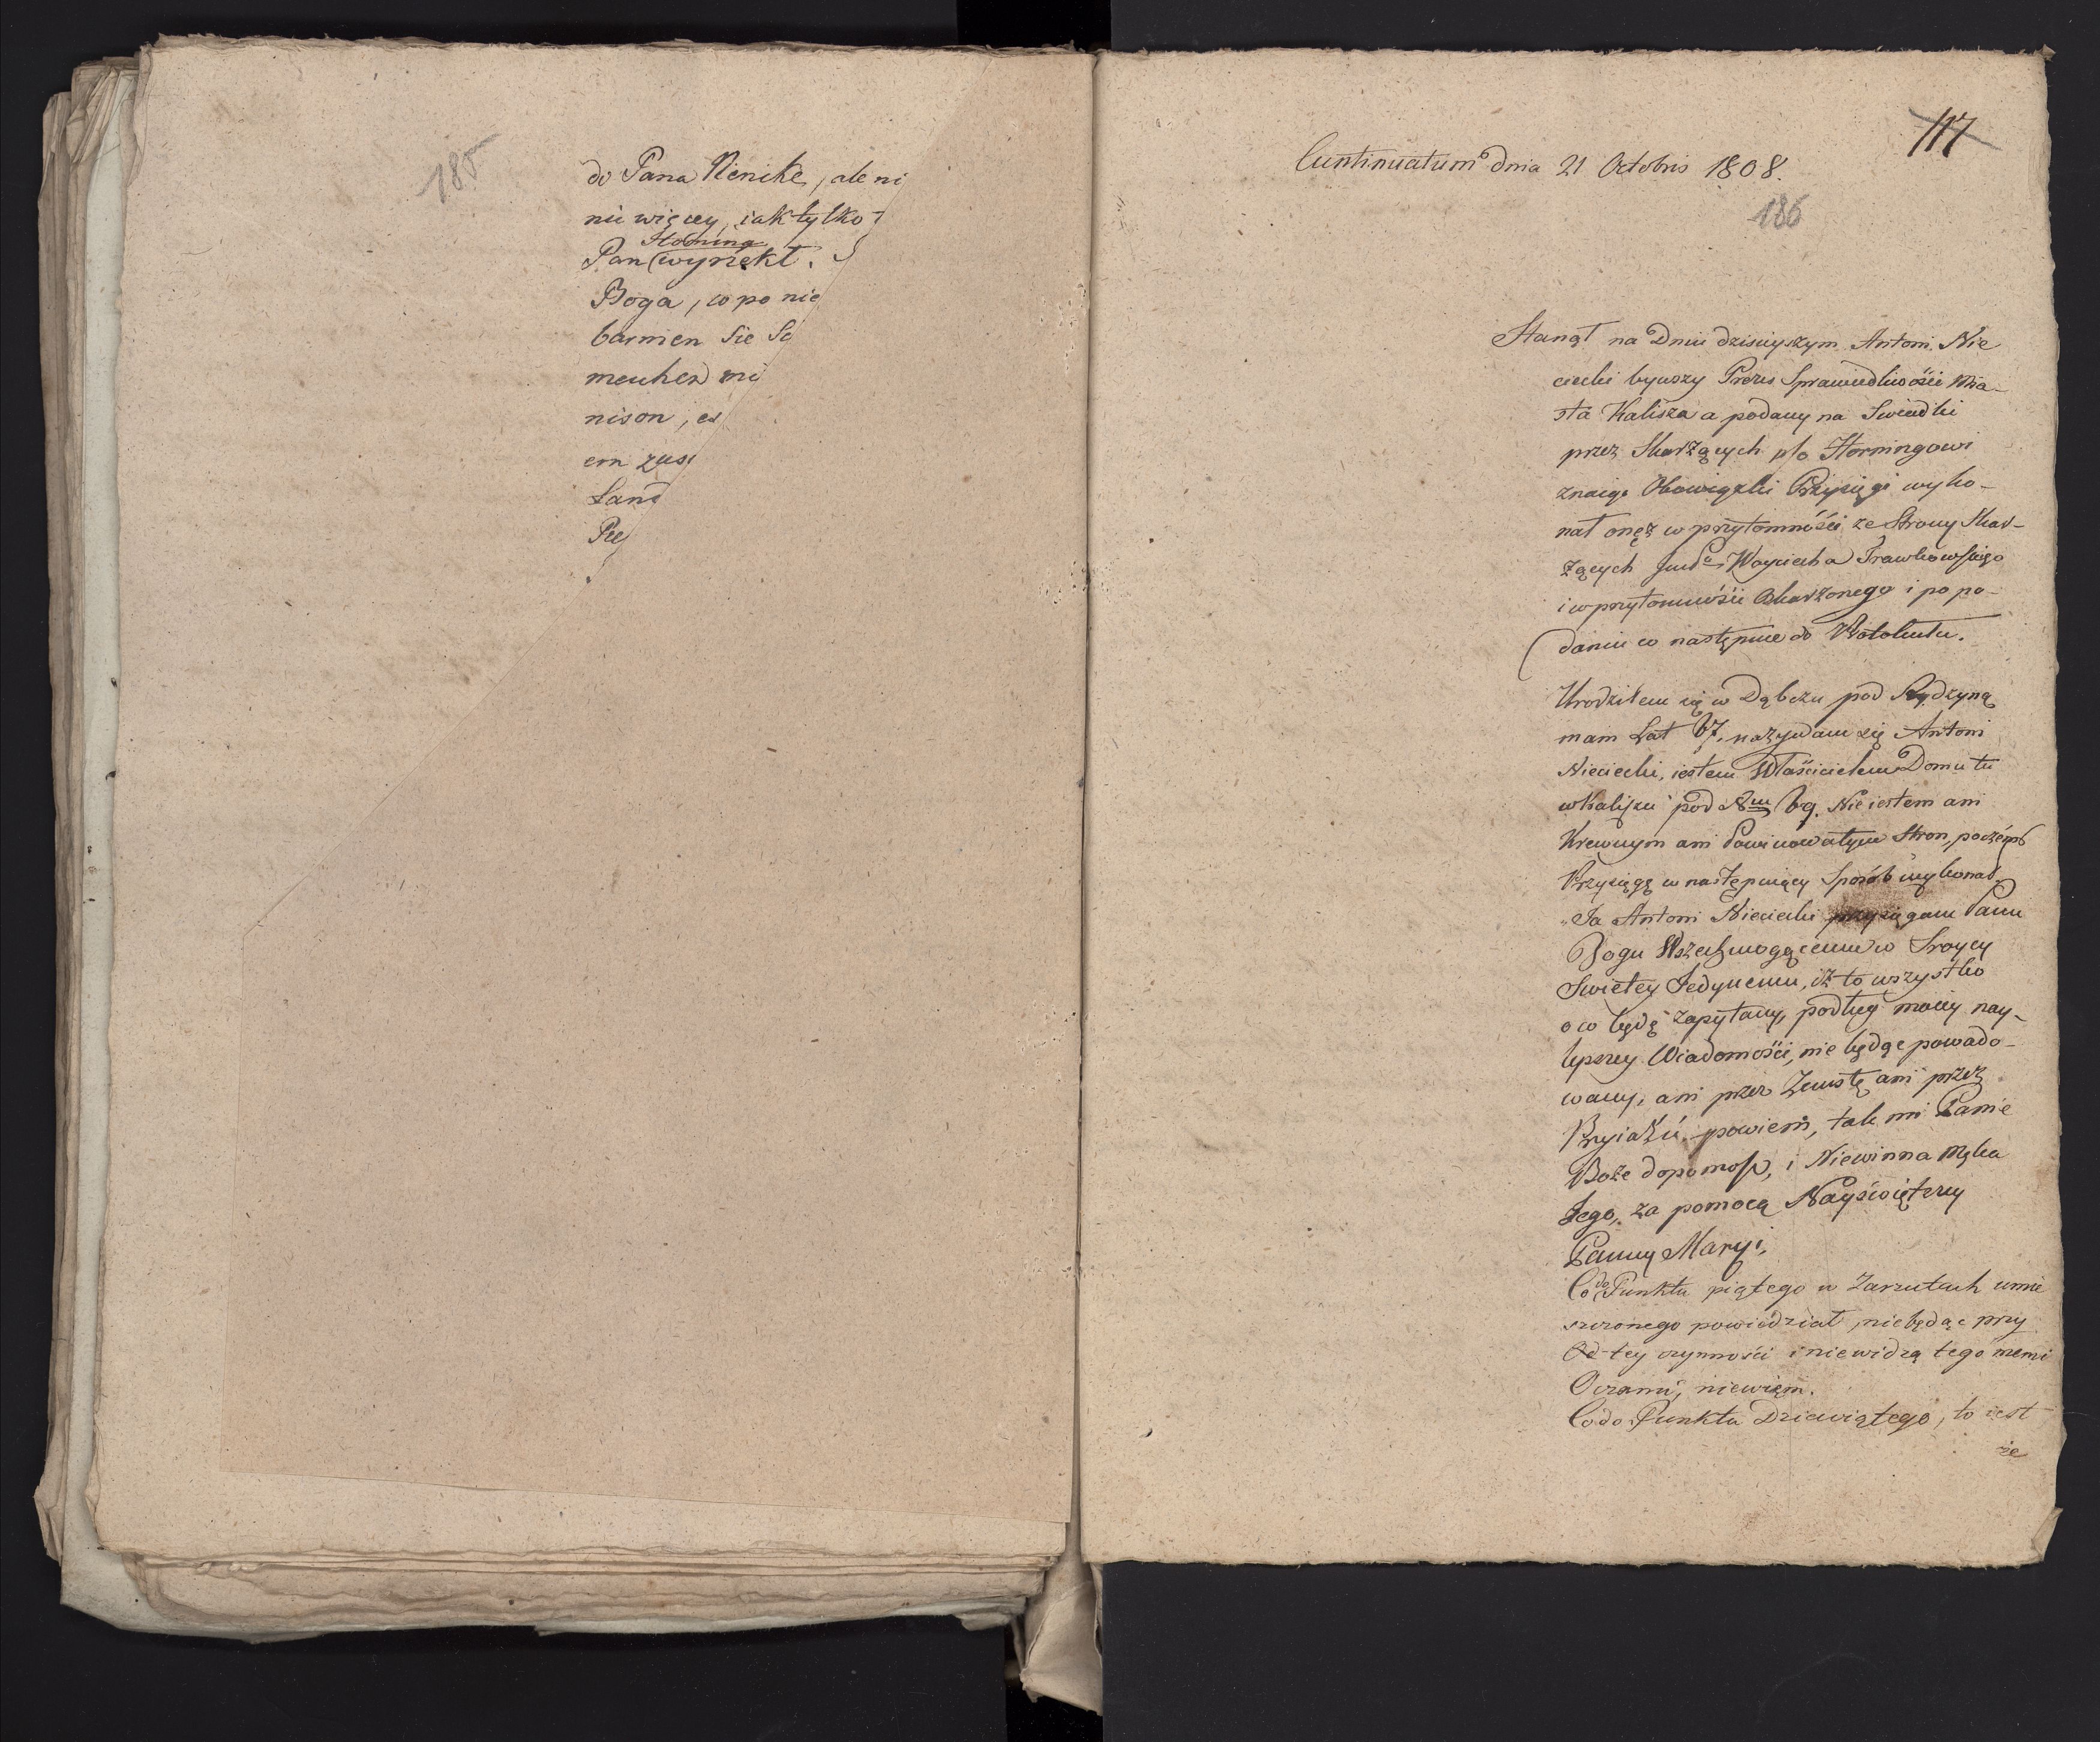 185
do Pana Nenike, ale ni
nic więcey, iak tylko
Horning
Pan wyrzekł.
Boga, co po nie
barmen Sie So
meuhen mi
nison, es
em zus
Land
Pee
117
Continuatum dnia 21 Octobris 1808.
186
Stanął na Dniu dzisieyszym Antoni Nie
ciecki bywszy Prezes Sprawiedliwości Mia-
sta Kalisza a podany na Swiadki
przez Skarżących p/o Horningowi
znaiąc Obowiązki Przysięgi wyko-
nał onęż w przytomności ze Strony Skar-
żących Woyciecha Trawkowskiego
i w przytomności Oskarżonego i po po-
daniu co następuie do Protokułu.
Urodziłem się w Dąbczu pod Rydzyną
mam Lat 67. nazywam się Antoni
Nieciecki, iestem Właścicielem Domu tu
w Kaliszu pod Nrm 69. Nie iestem ani
Krewnym ani Powinowatym Stron, poczém
Przysięgę w następuiący Sposób wykonał.
„Ja Antoni Nieciecki przysięgam Panu
Bogu Wszechmogącemu w Troycy
Swietey Jedynemu, iż to wszystko
o co będę zapytany, podług moiey nay-
lepszey Wiadomości, nie będąc powado-
wany, ani przez Zemstę ani przez
Przyiaźń powiem, tak mi Panie
Boże dopomosz, i Niewinna Męka
Jego, za pomocą Nayświętszey
Panny Maryi,
Co do Punktu piątego w Zarzutach umie
szczonego powiedział, nie będąc przy
Od tey czynności i niewidzą tego memi
Oczami, niewiem.
Co do Punktu Dziewiątego, to iest
że